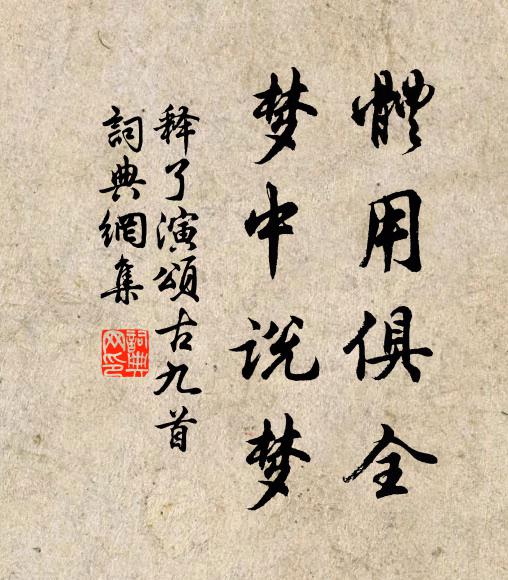 體用俱全
梦中说梦
释了演頌古九首
詞典網集
詞典
网印